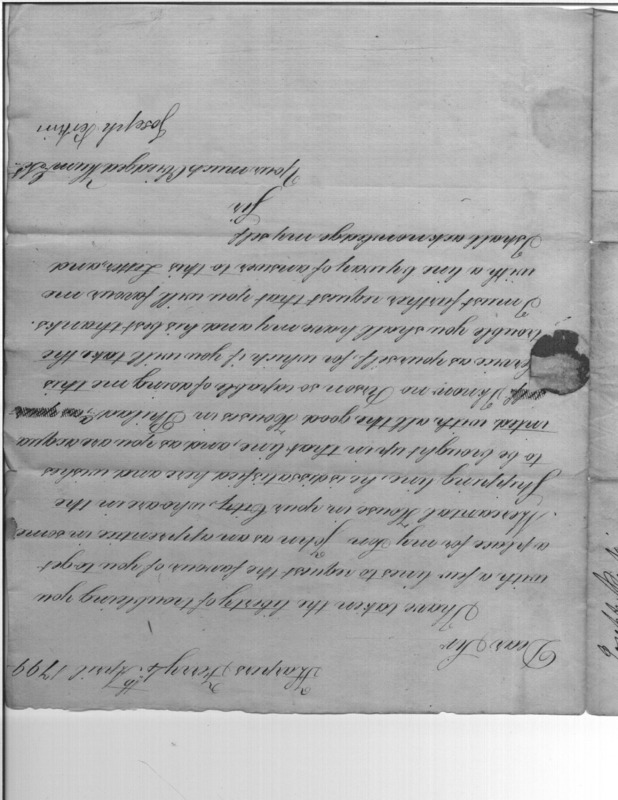 Harpers Ferry 4th April 1799
Dear Sir
I have taken the liberty of troubleing you
with a few lines to request the favour of you to get
a place for my Son John as an apprentice in some
Mercantal House in your City, who are in the
Shipping line, he is dissatisfied here and wishes
to be brought up in that line, and as you are acqua
inted with all the good Houses in Philad.a
I know no Person so capable of doing me this
Service as yourself, for which if you will take the
trouble you shall have my and his best thanks.
I must further request that you will favour me
with a line by way of answer to this Letter, and
I shall acknowledge myself
Sir
Your much Obridged Hum. St.
Joseph Perkin